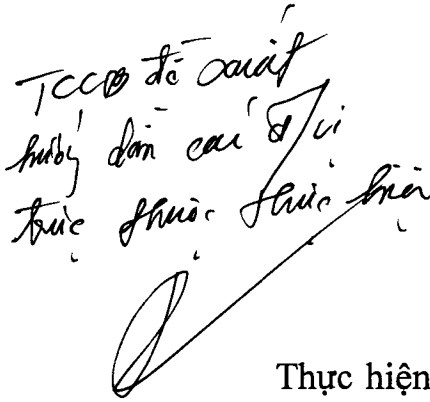 TCCB đề xuất
hướng dẫn các Đ/vị
trực thuộc thực hiện
Thực hiện